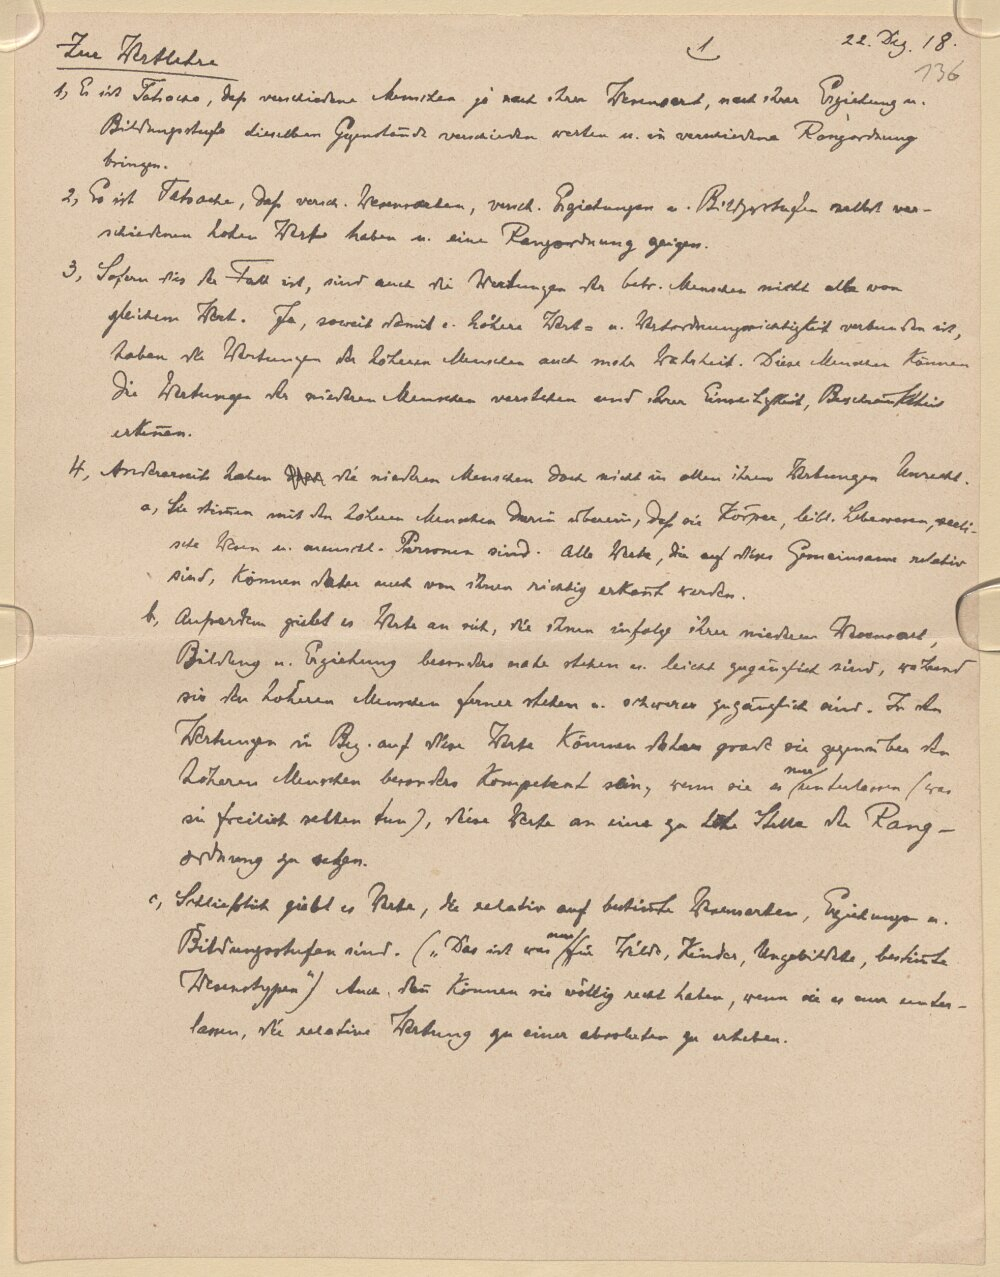 Zur Wertlehre
1
22. Dez. 18.
136
1, Es ist Tatsache, daß verschiedene Menschen je nach ihrer Wesensart, nach ihrer Erziehung u.
Bildungsstufe dieselben Gegenstände verschieden werten u. in verschiedene Rangordnung
bringen.
2, Es ist Tatsache, daß versch. Wesensarten, versch. Erziehungen u. Bildgsstufen selbst ver-
schiedenen hohen Wert haben u. eine Rangordnung zeigen.
3, Sofern dies der Fall ist, sind auch die Wertungen der betr. Menschen nicht alle von
gleichem Wert. Ja, soweit damit e. höhere Wert= u. Wertordnungsrichtigkeit verbunden ist,
haben die Wertungen der höheren Menschen auch mehr Wahrheit. Diese Menschen können
die Wertungen der niederen Menschen verstehen und ihrer Einseitigkeit, Beschränktheit
erkennen.
4, Andererseits haben die niederen Menschen doch nicht in allen ihren Wertungen Unrecht.
a, Sie stimmen mit den höheren Menschen darin überein, daß sie Körper, leibl. Lebewesen, seeli-
sche Wesen u. menschl. Personen sind. Alle Werte, die auf dieses Gemeinsame relativ
sind, können daher auch von ihnen richtig erkannt werden.
b, Außerdem giebt es Werte an sich, die ihnen infolge ihrer niederen Wesensart,
Bildung u. Erziehung besonders nahe stehen u. leicht zugänglich sind, während
sie den höheren Menschen ferner stehen u. schwerer zugänglich sind. In den
Wertungen in Bez. auf diese Werte können daher grade sie gegenüber den
höheren Menschen besonders kompetent sein, wenn sie es nur unterlassen (was
sie freilich selten tun), diese Werte an eine zu hohe Stelle der Rang-
ordnung zu setzen.
c, Schließlich giebt es Werte, die relativ auf bestimte Wesensarten, Erziehungs= u.
Bildungsstufen sind. („Das ist was nur für Wilde, Kinder, Ungebildete, bestimte
Wesenstypen") Auch dan können sie völlig recht haben, wenn sie es nur unter-
lassen, die relative Wertung zu einer absoluten zu erheben.